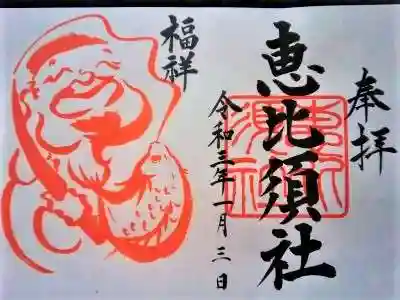 奉拝
恵比須社
令和三年一月三日
福祥